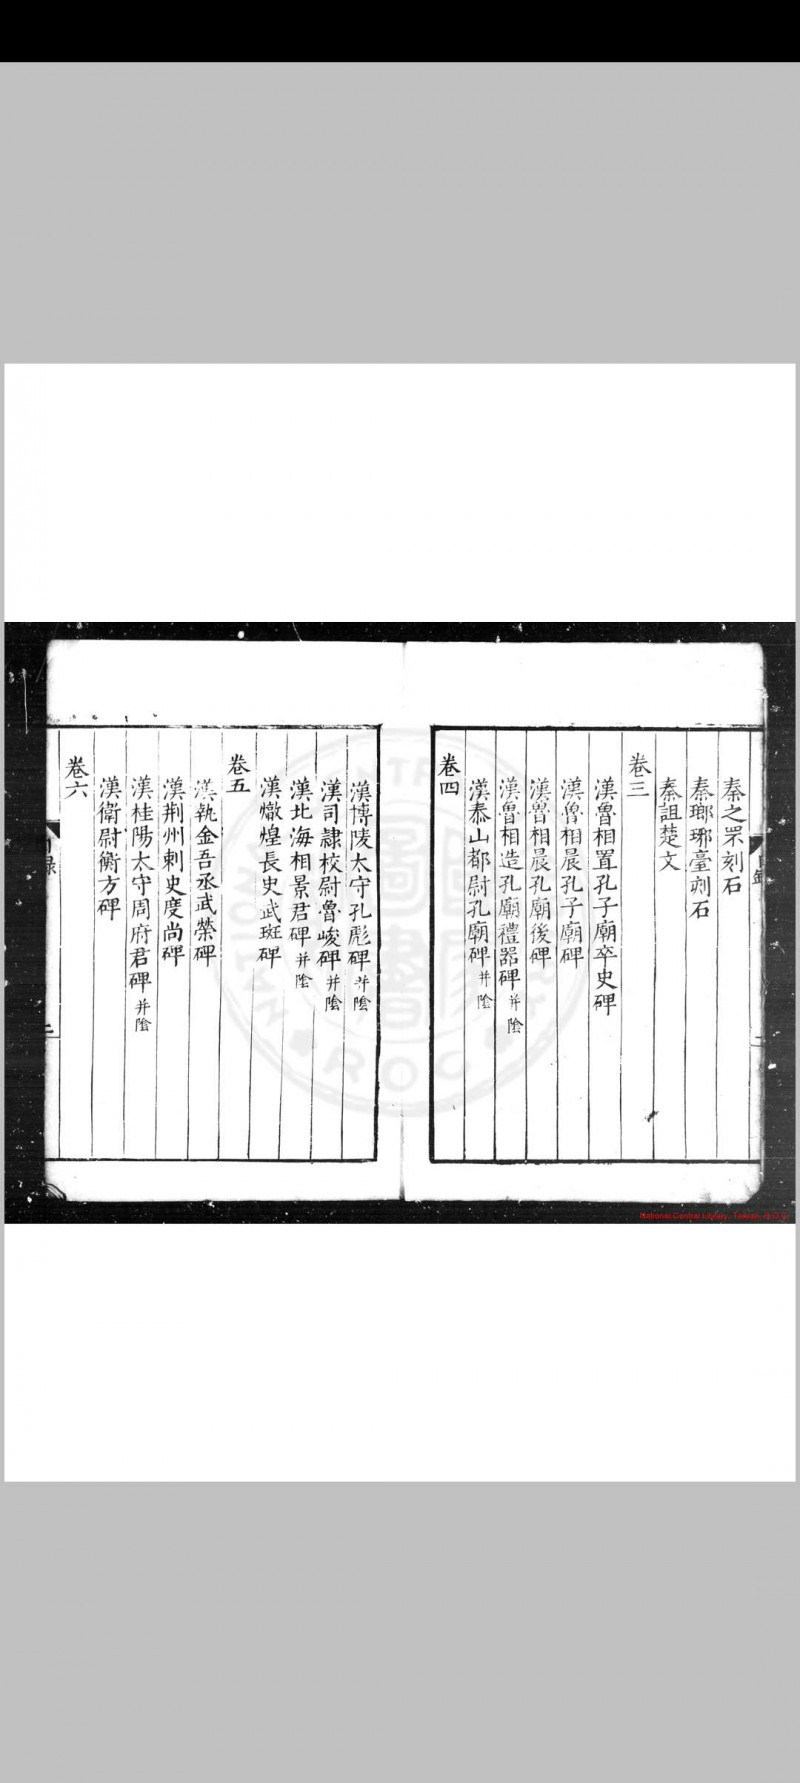 秦之罘刻石
秦瑯琊臺刻石
秦詛楚文
卷三
漢魯相置孔子廟卒史碑
漢魯相晨孔子廟碑
漢魯相晨孔廟後碑
漢魯相造孔廟禮器碑并陰
漢泰山都尉孔廟碑并陰
卷四
漢博陵太守孔彪碑并陰
漢司隷校尉魯峻碑并陰
漢北海相景君碑并陰
漢燉煌長史武斑碑
卷五
漢執金吾丞武榮碑
漢荆州刺史度尚碑
漢桂陽太守周府君碑并陰
漢衛尉衡方碑
卷六
目録
二
National Central Library, Taiwan